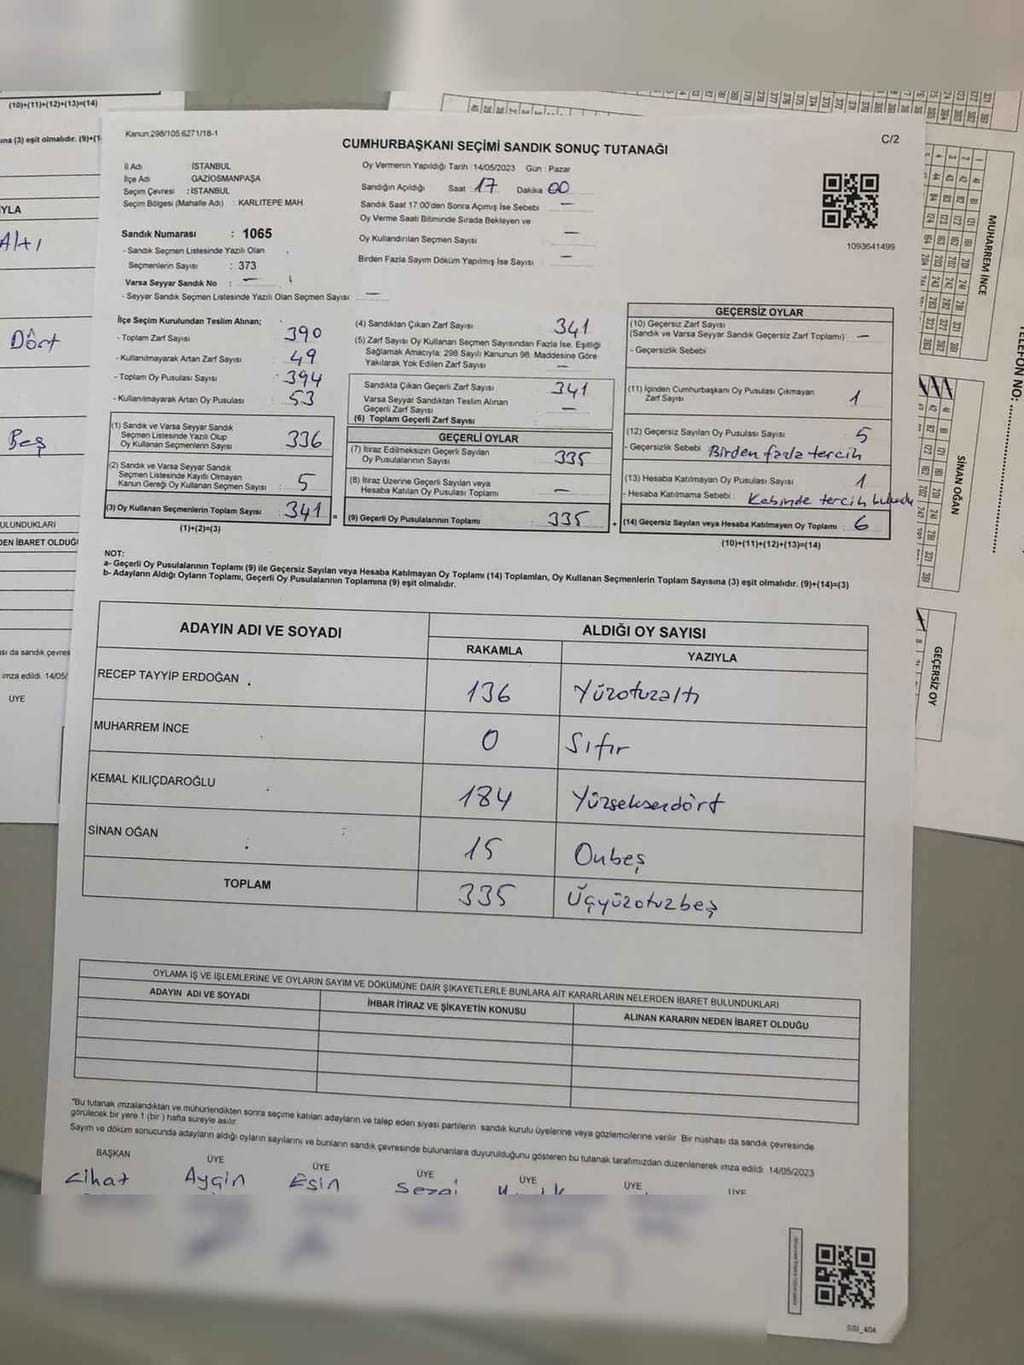 Kanun:298/105.6271/18-1
C/2
CUMHURBAŞKANI SEÇİMİ SANDIK SONUÇ TUTANAĞI
İl Adı : İSTANBUL
İlçe Adı : GAZİOSMANPAŞA
Seçim Çevresi : İSTANBUL
Seçim Bölgesi (Mahalle Adı) : KARLITEPE MAH
Sandık Numarası : 1065
- Sandık Seçmen Listesinde Yazılı Olan
Seçmenlerin Sayısı : 373
Varsa Seyyar Sandık No : —
- Seyyar Sandık Seçmen Listesinde Yazılı Olan Seçmen Sayısı : —
Oy Vermenin Yapıldığı Tarih : 14/05/2023 Gün : Pazar
Sandığın Açıldığı Saat 17 Dakika 00
Sandık Saat 17:00'den Sonra Açımış İse Sebebi —
Oy Verme Saati Bitiminde Sırada Bekleyen ve
Oy Kullandırılan Seçmen Sayısı —
Birden Fazla Sayım Döküm Yapılmış İse Sayısı —
1093641499
İlçe Seçim Kurulundan Teslim Alınan;
- Toplam Zarf Sayısı : 390
- Kullanılmayarak Artan Zarf Sayısı : 49
- Toplam Oy Pusulası Sayısı : 394
- Kullanılmayarak Artan Oy Pusulası : 53
(1) Sandık ve Varsa Seyyar Sandık
Seçmen Listesinde Yazılı Olup
Oy Kullanan Seçmenlerin Sayısı : 336
(2) Sandık ve Varsa Seyyar Sandık
Seçmen Listesinde Kayıtlı Olmayan
Kanun Gereği Oy Kullanan Seçmen Sayısı : 5
(3) Oy Kullanan Seçmenlerin Toplam Sayısı : 341
(1)+(2)=(3)
(4) Sandıktan Çıkan Zarf Sayısı : 341
(5) Zarf Sayısı Oy Kullanan Seçmen Sayısından Fazla İse, Eşitliği
Sağlamak Amacıyla; 298 Sayılı Kanunun 98. Maddesine Göre
Yakılarak Yok Edilen Zarf Sayısı : —
Sandıkta Çıkan Geçerli Zarf Sayısı : 341
Varsa Seyyar Sandıktan Teslim Alınan
Geçerli Zarf Sayısı : —
(6) Toplam Geçerli Zarf Sayısı
GEÇERLİ OYLAR
(7) İtiraz Edilmeksizin Geçerli Sayılan
Oy Pusulalarının Sayısı : 335
(8) İtiraz Üzerine Geçerli Sayılan veya
Hesaba Katılan Oy Pusulası Toplamı : —
(9) Geçerli Oy Pusulalarının Toplamı : 335
GEÇERSİZ OYLAR
(10) Geçersiz Zarf Sayısı
(Sandık ve Varsa Seyyar Sandık Geçersiz Zarf Toplamı) : —
- Geçersizlik Sebebi
(11) İçinden Cumhurbaşkanı Oy Pusulası Çıkmayan
Zarf Sayısı : 1
(12) Geçersiz Sayılan Oy Pusulası Sayısı : 5
- Geçersizlik Sebebi : Birden fazla tercih
(13) Hesaba Katılmayan Oy Pusulası Sayısı : 1
- Hesaba Katılmama Sebebi : Kabinde tercih
(14) Geçersiz Sayılan veya Hesaba Katılmayan Oy Toplamı : 6
(10)+(11)+(12)+(13)=(14)
NOT:
a- Geçerli Oy Pusulalarının Toplamı (9) ile Geçersiz Sayılan veya Hesaba Katılmayan Oy Toplamı (14) Toplamları, Oy Kullanan Seçmenlerin Toplam Sayısına (3) eşit olmalıdır. (9)+(14)=(3)
b- Adayların Aldığı Oyların Toplamı, Geçerli Oy Pusulalarının Toplamına (9) eşit olmalıdır.
ADAYIN ADI VE SOYADI
ALDIĞI OY SAYISI
RAKAMLA YAZIYLA
RECEP TAYYİP ERDOĞAN 136 Yüzotuzaltı
MUHARREM İNCE 0 Sıfır
KEMAL KILIÇDAROĞLU 184 Yüzseksendört
SİNAN OĞAN 15 Onbeş
TOPLAM 335 Üçyüzotuzbeş
OYLAMA İŞ VE İŞLEMLERİNE VE OYLARIN SAYIM VE DÖKÜMÜNE DAİR ŞİKAYETLERLE BUNLARA AİT KARARLARIN NELERDEN İBARET BULUNDUKLARI
ADAYIN ADI VE SOYADI
İHBAR İTİRAZ VE ŞİKAYETİN KONUSU
ALINAN KARARIN NEDEN İBARET OLDUĞU
"Bu tutanak imzalandıktan ve mühürlendikten sonra seçime katılan adayların ve talep eden siyasi partilerin sandık kurulu üyelerine veya gözlemcilerine verilir. Bir nüshası da sandık çevresinde
görülecek bir yere 1 (bir) hafta süreyle asılır.
Sayım ve döküm sonucunda adayların aldığı oyların sayılarını ve bunların sandık çevresinde bulunanlara duyurulduğunu gösteren bu tutanak tarafımızdan düzenlenerek imza edildi. 14/05/2023
BAŞKAN ÜYE ÜYE ÜYE ÜYE ÜYE ÜYE
Cihat Aygin Esin Sezai
SSI_404
(10)+(11)+(12)+(13)=(14)
Altı
Dört
Beş
ÜYE
MUHARREM İNCE
SİNAN OĞAN
GEÇERSİZ OY
TELEFON NO: